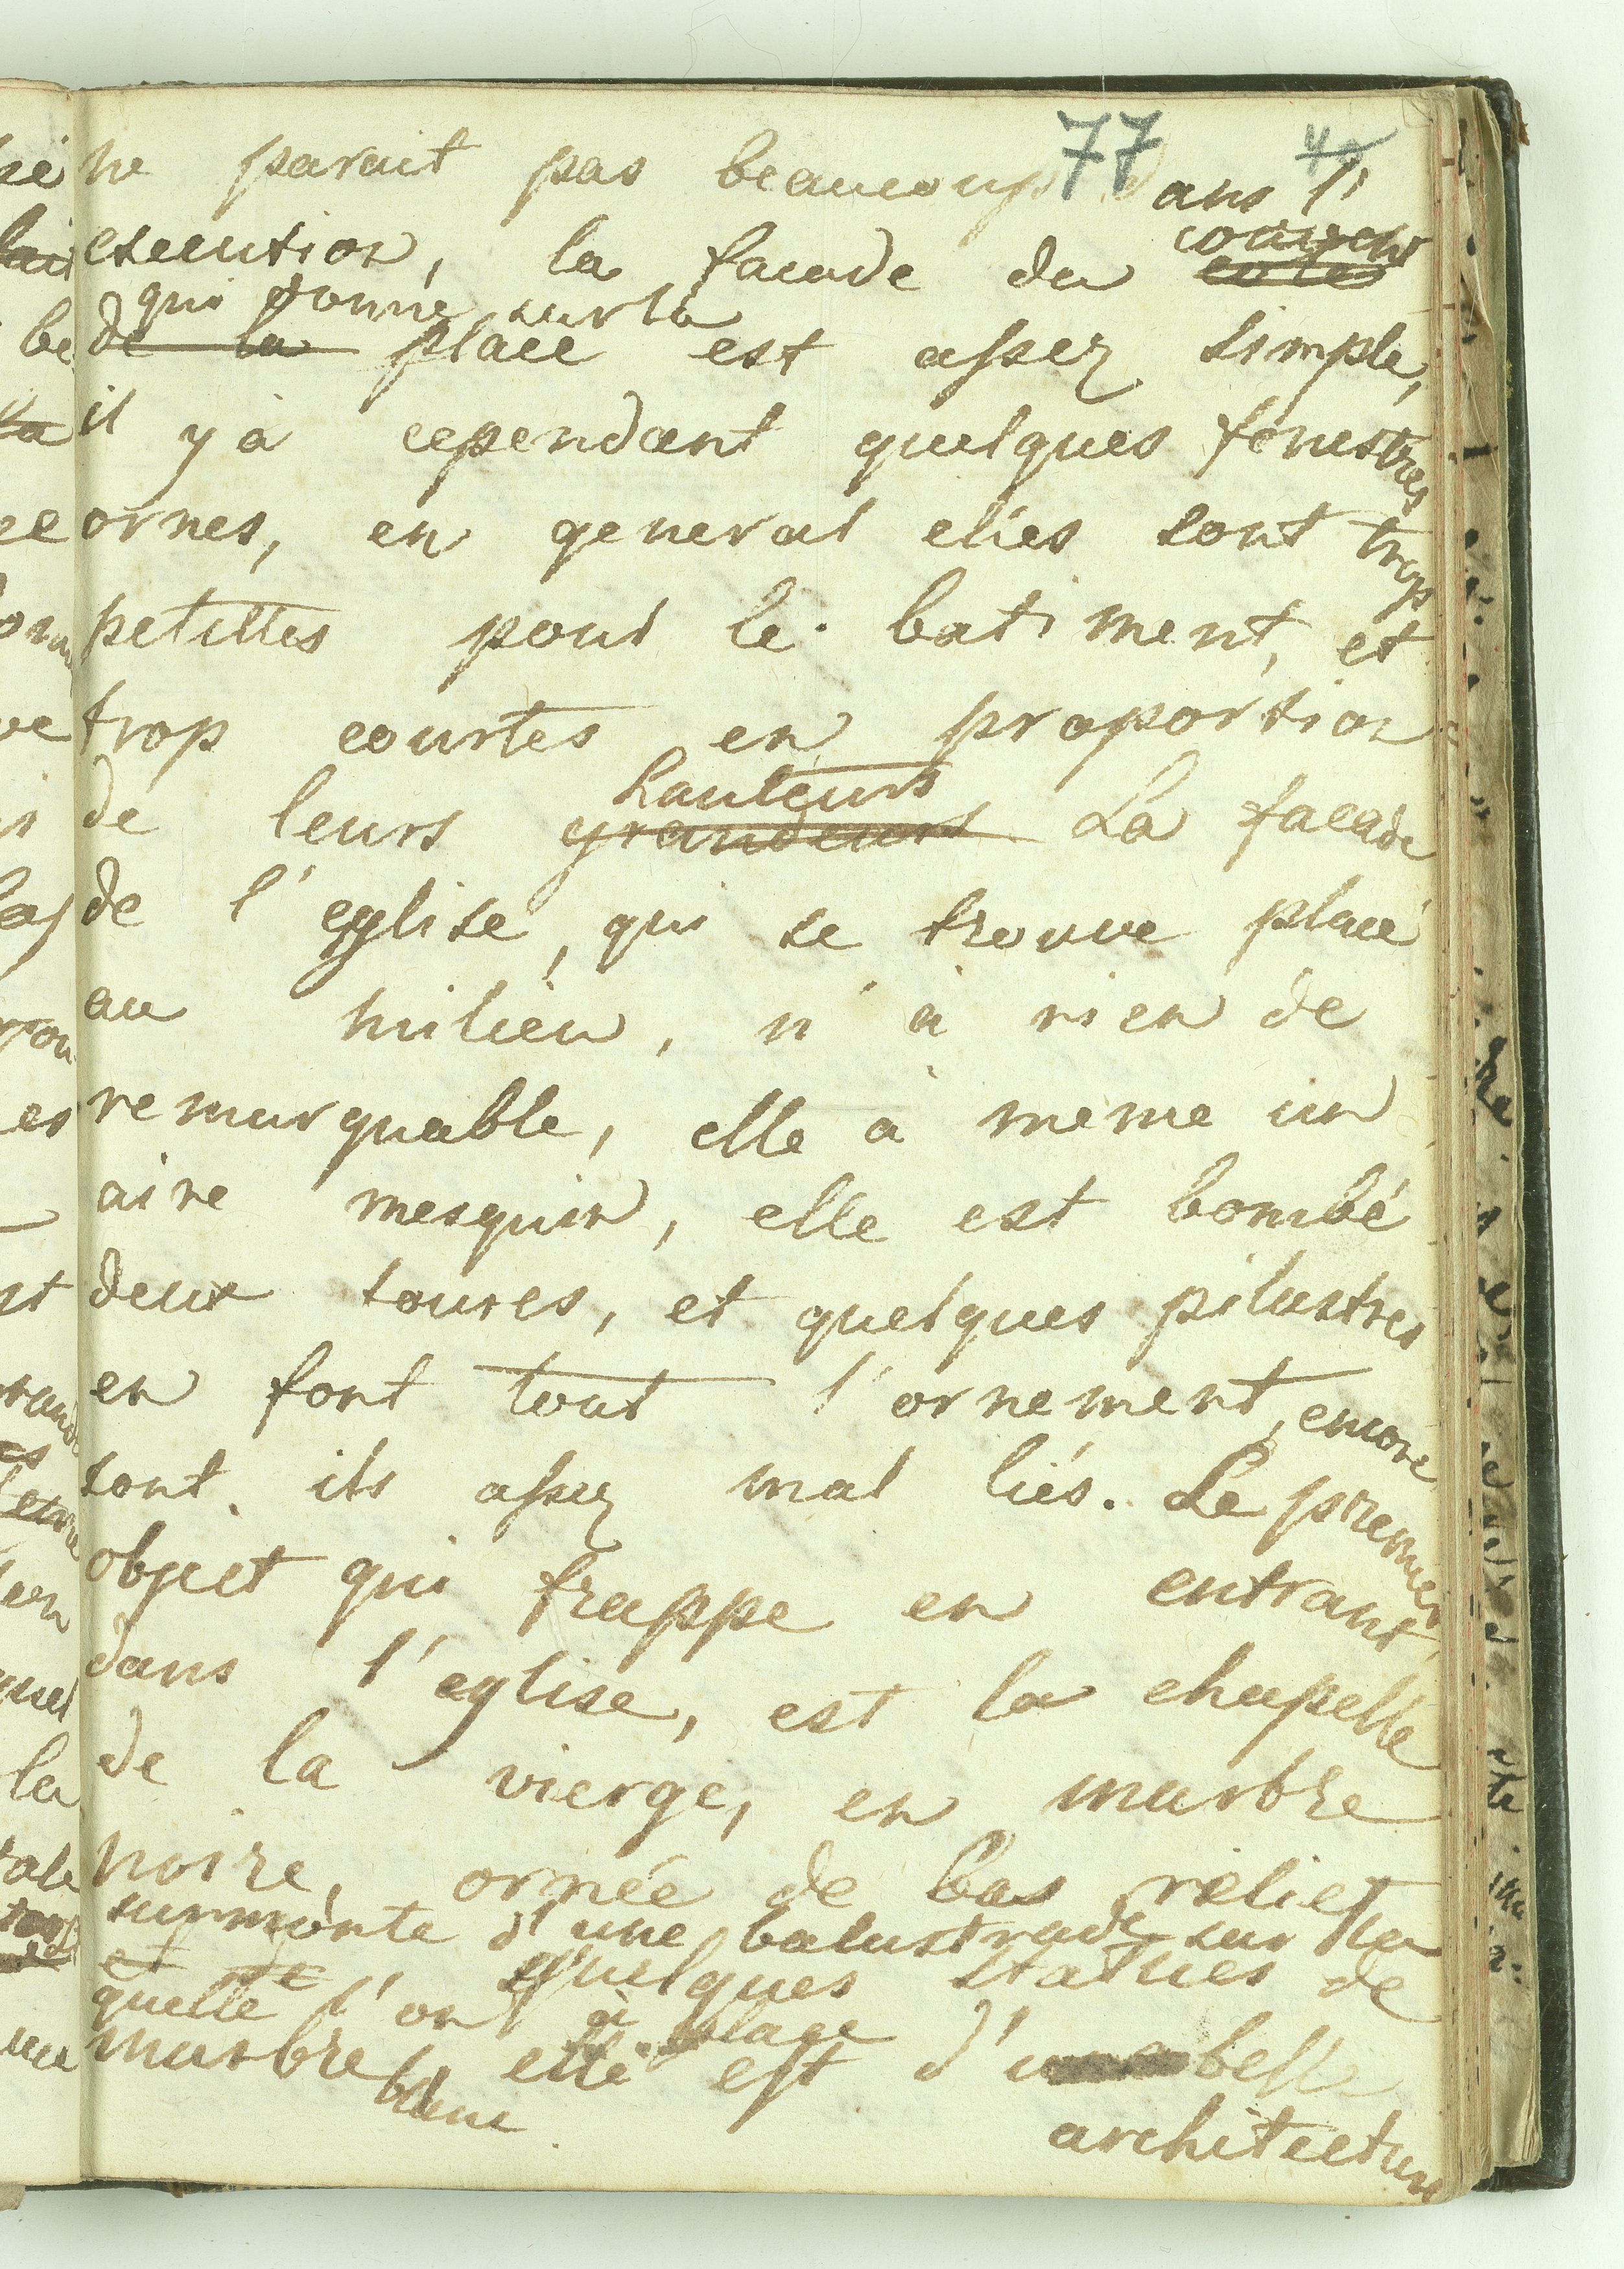 77
ne parait pas beaucoup dans l'
execution, la facade du couvent
qui donne sur la
de la place est assez simple,
il y à cependant quelques fenestres
ornes, en general elles sont trop
petittes pour le batiment, et
trop courtes en proportion
hauteurs
de leurs grandeurs La facade
de l'eglise, qui se trouve placé
au milieu, n'à rien de
remarquable, elle a meme un
aire mesquin, elle est bombé
deux toures, et quelques pilastres
en font tout l'ornement, encore
sont ils assez mal liés. Le premier
objet qui frappe en entrant
dans l'eglise, est la chapelle
de la vierge, en marbre
noire, ornée de bas relief
surmonte d'une balustrade sur la
et de quelques statues de
quelle l'on à place
marbre blanc elle est d'une belle
architecture